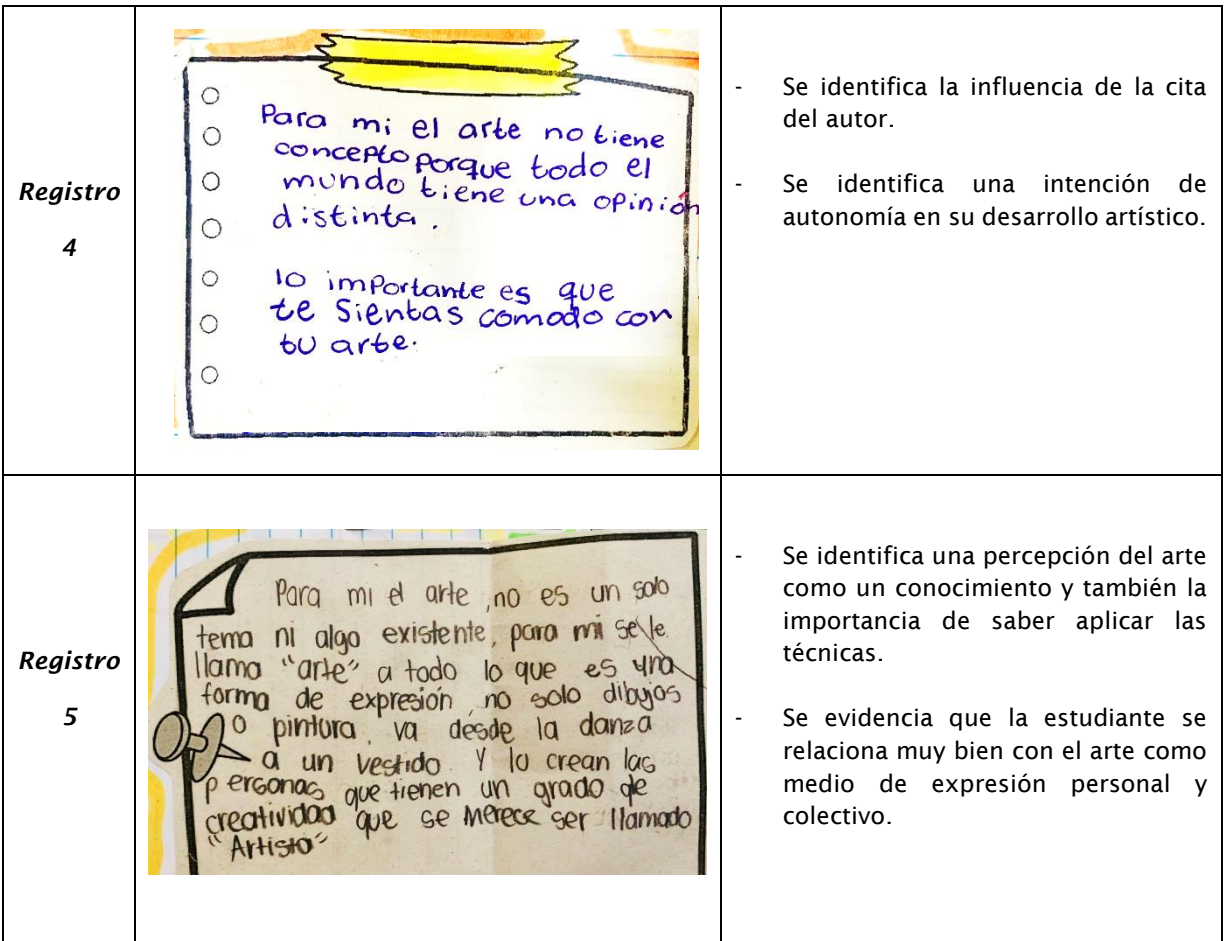 Registro
4
Para mi el arte no tiene
concepto porque todo el
mundo tiene una opinión
distinta.
lo importante es que
te sientas comodo con
tu arte.
- Se identifica la influencia de la cita
del autor.
- Se identifica una intención de
autonomía en su desarrollo artístico.
Registro
5
Para mi el arte, no es un solo
tema ni algo existente, para mi se le
llama "arte" a todo lo que es una
forma de expresión, no solo dibujos
o pintura, va desde la danza
a un vestido. Y lo crean las
personas que tienen un grado de
creatividad que se merece ser llamado
"Artista"
- Se identifica una percepción del arte
como un conocimiento y también la
importancia de saber aplicar las
técnicas.
- Se evidencia que la estudiante se
relaciona muy bien con el arte como
medio de expresión personal y
colectivo.